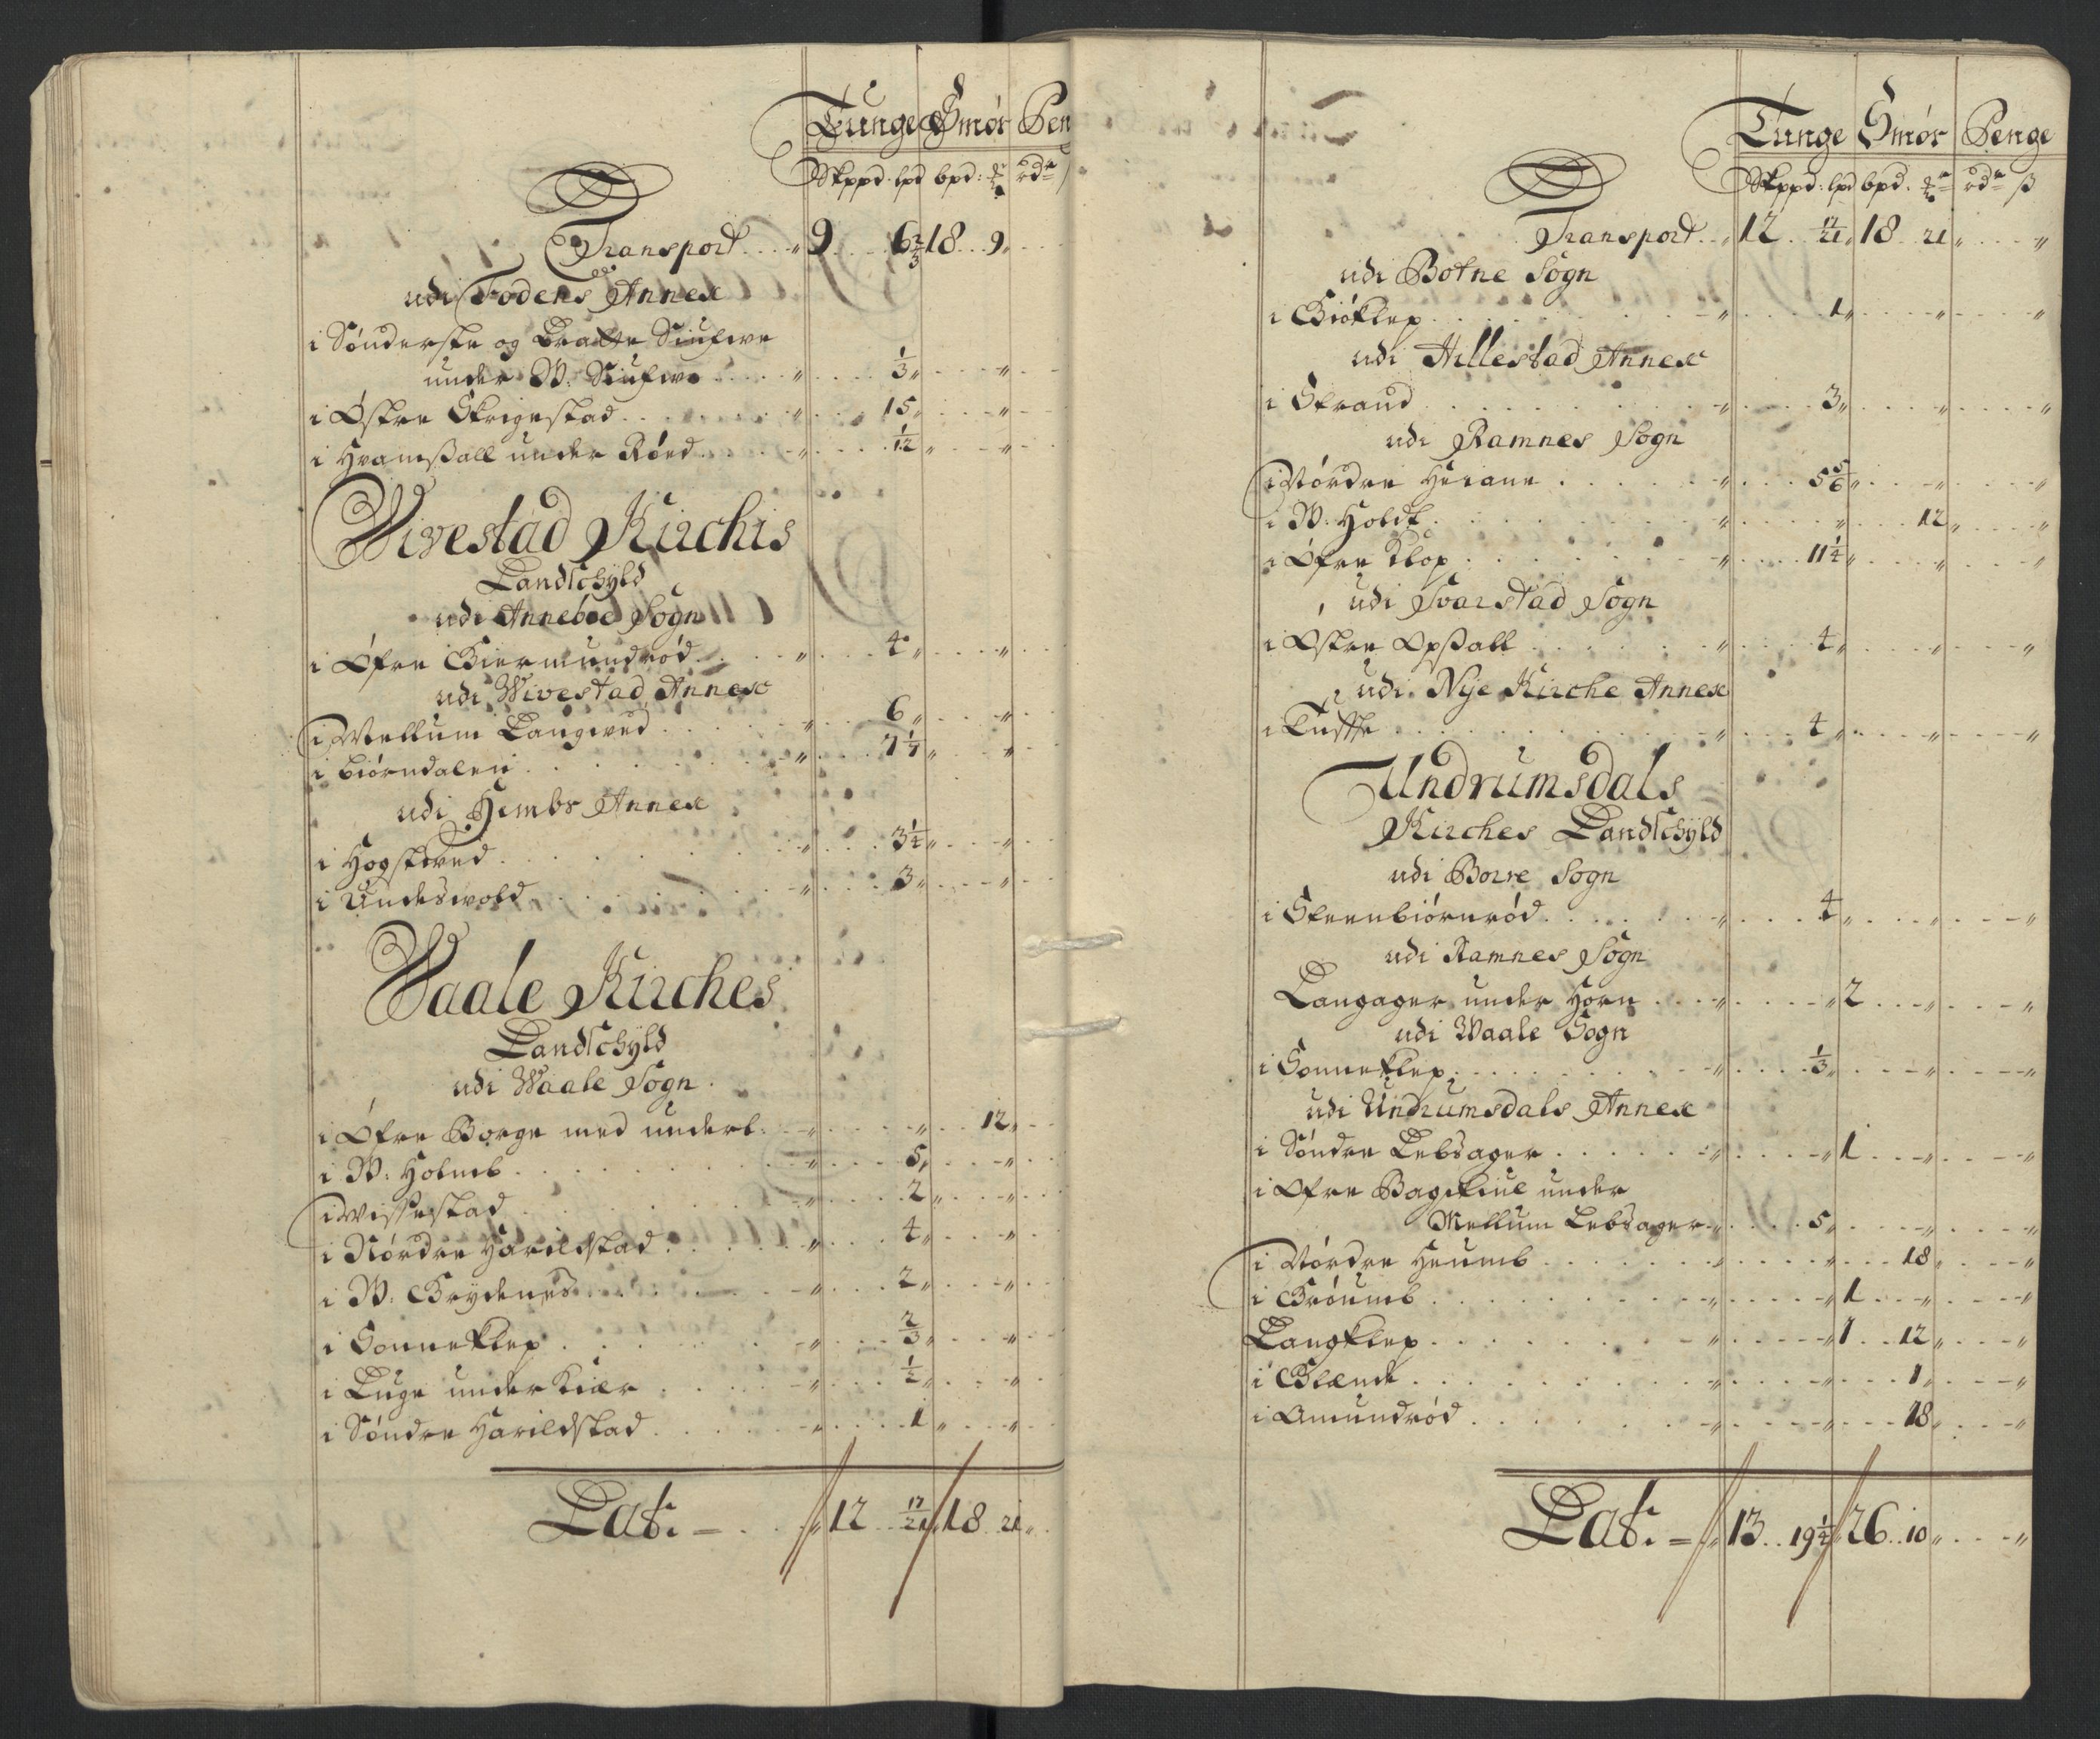 Tunge Smør Pen
Skppd. lpd bpd: rdr
Transport 9 6 2/3 18 9
udi Fodens Annex
i Sønderste og Bratte Siufwe
under W: Siufwe 1/3
i Østre Skrigestad 15
i Hvamsall under Rørd 1/12
Wivestad Kirchis
Landschyld
udi Anneboe Sogn
i Øfre Giermundrød 4
udi Wivestad Annex
i Mellum Langved 6
i biørndalen 1 1/4
udi Hembs Annex
i Hogstved 3 1/4
i Undeswold 3
Waale Kirches
Landschyld
udi Waale Sogn
i Øfre Borge med underl: 12
i W: Holmb 5
i Wissestad 2
i Nørdre Harildstad 4
i W: Brydenes 2
i Sonneklep 2/3
i Luge under Kiær 1/2
i Søndre Harildstad 1
Lat. 12 17/21 18 21
Tunge Smør Penge
Skppd: lpd bpd. rdr ß
Transport 12 17/21 18 21
udi Botne Sogn
i Giøklep 1
udi Hillestad Annex
i Strand 3
udi Ramnes Sogn
i Nørdre Heiane 5 5/6
i W: Holdt 12
i Øfre Klop 11 1/4
udi Svarstad Sogn
i Østre Opsall 4
udi Nye Kirche Annex
i Tuffte 4
Undrumsdals
Kirches Landschyld
udi Borre Sogn
i Steenbiørnrød 4
udi Ramnes Sogn
Langager under Horn 2
udi Waale Sogn
i Sonneklep 1/3
udi Undrumsdals Annex
i Søndre Lebsager 1
i Øfre Bagekiul under
Mellum Lebsager 5
i Nørdre Heumb 18
i Brøumb 1
Langklep 1 12
i Blende 1
i Amundrød 18
Lat. 13 19 1/4 26 10